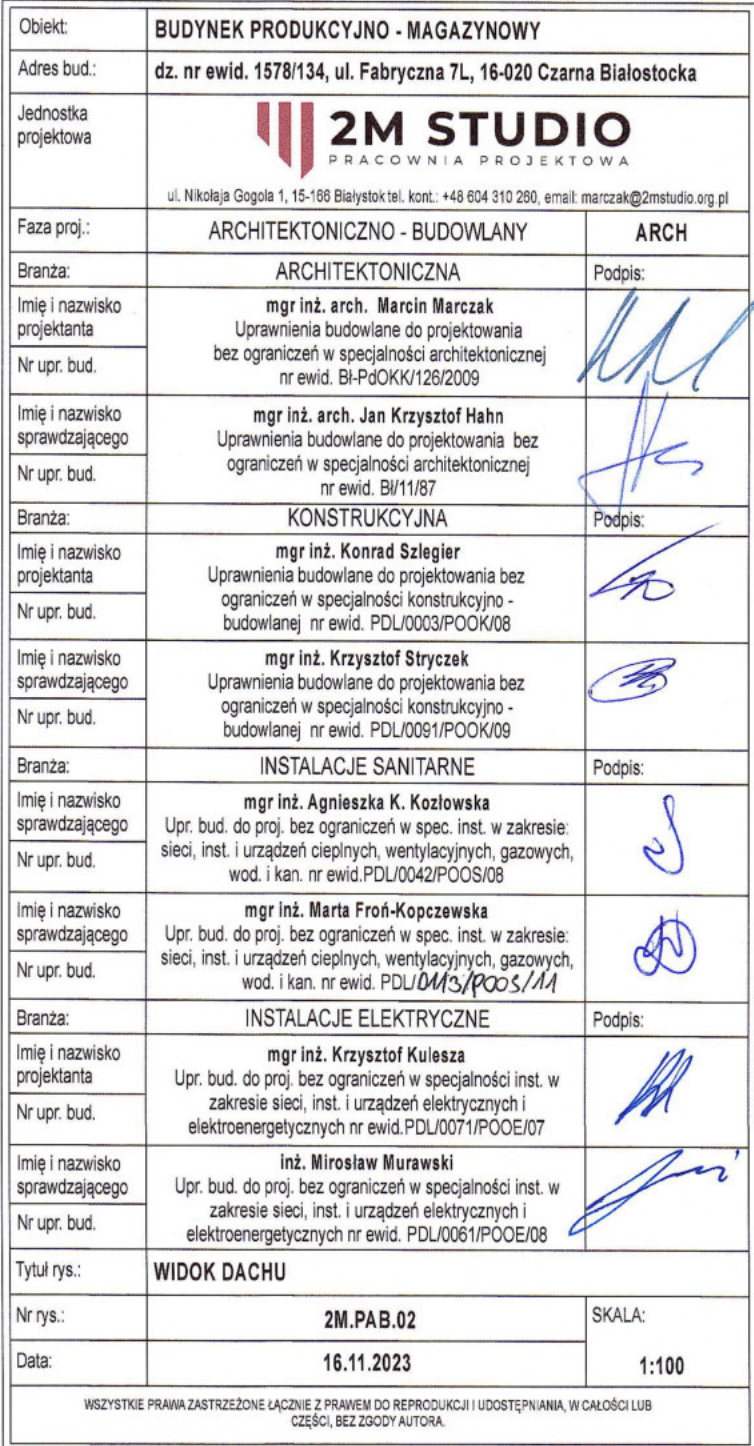 Obiekt: BUDYNEK PRODUKCYJNO - MAGAZYNOWY
Adres bud.: dz. nr ewid. 1578/134, ul. Fabryczna 7L, 16-020 Czarna Białostocka
Jednostka
projektowa
2M STUDIO
PRACOWNIA PROJEKTOWA
ul. Nikołaja Gogola 1, 15-166 Białystok tel. kont.: +48 604 310 260, email: marczak@2mstudio.org.pl
Faza proj.: ARCHITEKTONICZNO - BUDOWLANY ARCH
Branża: ARCHITEKTONICZNA Podpis:
Imię i nazwisko
projektanta
Nr upr. bud.
mgr inż. arch. Marcin Marczak
Uprawnienia budowlane do projektowania
bez ograniczeń w specjalności architektonicznej
nr ewid. Bł-PdOKK/126/2009
Imię i nazwisko
sprawdzającego
Nr upr. bud.
mgr inż. arch. Jan Krzysztof Hahn
Uprawnienia budowlane do projektowania bez
ograniczeń w specjalności architektonicznej
nr ewid. Bł/11/87
Branża: KONSTRUKCYJNA Podpis:
Imię i nazwisko
projektanta
Nr upr. bud.
mgr inż. Konrad Szlegier
Uprawnienia budowlane do projektowania bez
ograniczeń w specjalności konstrukcyjno -
budowlanej nr ewid. PDL/0003/POOK/08
Imię i nazwisko
sprawdzającego
Nr upr. bud.
mgr inż. Krzysztof Stryczek
Uprawnienia budowlane do projektowania bez
ograniczeń w specjalności konstrukcyjno -
budowlanej nr ewid. PDL/0091/POOK/09
Branża: INSTALACJE SANITARNE Podpis:
Imię i nazwisko
sprawdzającego
Nr upr. bud.
mgr inż. Agnieszka K. Kozłowska
Upr. bud. do proj. bez ograniczeń w spec. inst. w zakresie:
sieci, inst. i urządzeń cieplnych, wentylacyjnych, gazowych,
wod. i kan. nr ewid.PDL/0042/POOS/08
Imię i nazwisko
sprawdzającego
Nr upr. bud.
mgr inż. Marta Froń-Kopczewska
Upr. bud. do proj. bez ograniczeń w spec. inst. w zakresie:
sieci, inst. i urządzeń cieplnych, wentylacyjnych, gazowych,
wod. i kan. nr ewid. PDL/0113/POOS/11
Branża: INSTALACJE ELEKTRYCZNE Podpis:
Imię i nazwisko
projektanta
Nr upr. bud.
mgr inż. Krzysztof Kulesza
Upr. bud. do proj. bez ograniczeń w specjalności inst. w
zakresie sieci, inst. i urządzeń elektrycznych i
elektroenergetycznych nr ewid.PDL/0071/POOE/07
Imię i nazwisko
sprawdzającego
Nr upr. bud.
inż. Mirosław Murawski
Upr. bud. do proj. bez ograniczeń w specjalności inst. w
zakresie sieci, inst. i urządzeń elektrycznych i
elektroenergetycznych nr ewid. PDL/0061/POOE/08
Tytuł rys.: WIDOK DACHU
Nr rys.: 2M.PAB.02 SKALA:
Data: 16.11.2023 1:100
WSZYSTKIE PRAWA ZASTRZEŻONE ŁĄCZNIE Z PRAWEM DO REPRODUKCJI I UDOSTĘPNIANIA, W CAŁOŚCI LUB
CZĘŚCI, BEZ ZGODY AUTORA.